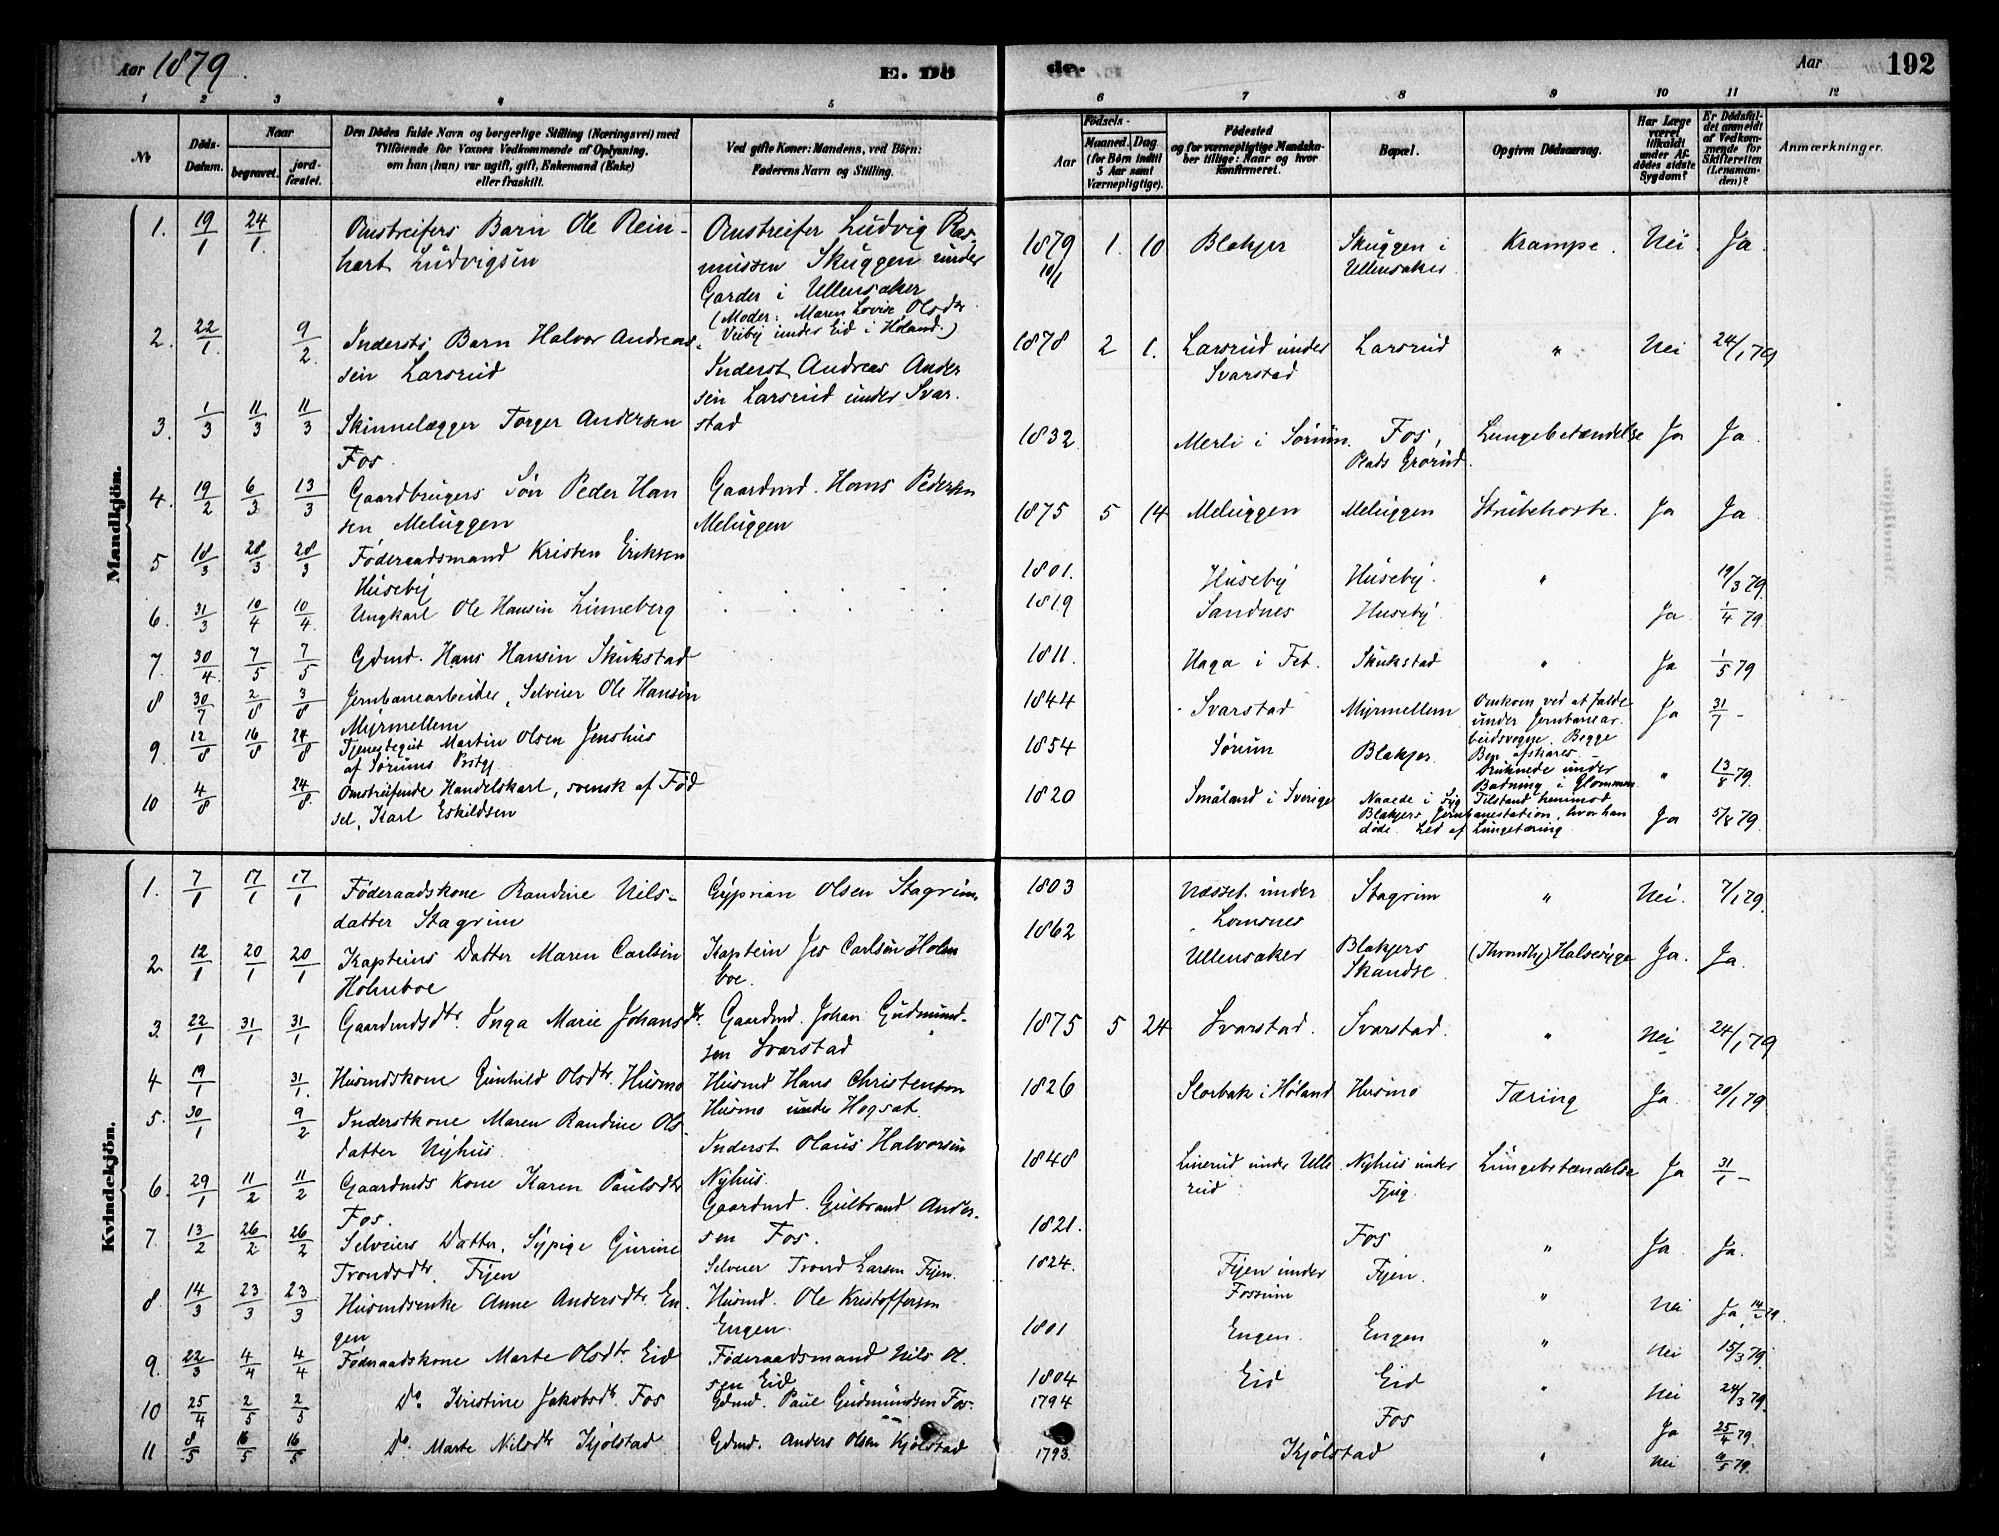 Aar 1879.
E. Dö
de.
Aar
192
1 2 3 4 5 6 7 8 9 10 11 12
No
Döds-Datum.
Naar
begravet. jordfæstet.
Den Dödes fulde Navn og borgerlige Stilling (Næringsvei) med
Tilföiende for Voxnes Vedkommende af Oplysning,
om han (hun) var ugift, gift, Enkemand (Enke)
eller fraskilt.
Ved gifte Koner: Mandens, ved Börn:
Faderens Navn og Stilling.
Födsels-
Aar
Maaned. Dag
(for Börn indtil
5 Aar samt
Værnepligtige).
Födested
og for værnepligtige Mandska-
ber tillige: Naar og hvor
konfirmeret.
Bopæl.
Opgiven Dödsaarsag.
Har Læge
været
tilkaldt
under Af-
dödes sidste
Sygdom?
Er Dödsfal-
det anmeldt
af Vedkom-
mende for
Skifteretten
(Lensman-
den)?
Anmærkninger.
Mandkjön.
1. 19/1 24/1 Omstreifers Barn Ole Rein- Omstreifer Ludvig Ras- 1879 1. 10 Blakjer Skuggen i Krampe. Nei Ja.
hart Ludvigsen mussen Skuggen under 10/1 Ullensaker
Garder i Ullensaker
(Moder: Maren Lovise Olsdtr
Veiby under Eid i Høland.)
2. 22/1 9/2 Indersts Barn Halvor Andreas- 1878 2 1. Larsrud under Larsrud " Nei 24/1 79
sen Larsrud Inderst Andreas Ander Svarstad
sen Larsrud under Svar.
stad
3. 1/3 11/3 11/3 Skinnelægger Torger Andersen 1832 Merli i Sørum. Fos, Lungebetændelse Ja Ja.
Fos. Plads Grorud.
4. 19/2 6/3 13/3 Gaardbrugers Søn Peder Han Gaardmd. Hans Pedersen 1875 5 14 Meluggen Meluggen Strubehoste. Ja Ja.
sen Meluggen Meluggen
5 18/3 28/3 28/3 Føderaadsmand Kristen Eriksen 1801. Huseby Huseby. " 19/3 79.
Huseby
6. 31/3 10/4 10/4 Ungkarl Ole Hansen Linneberg 1819 Sandnes Huseby Ja 1/4 79
7. 30/4 7/5 7/5 Gdmd. Hans Hansen Skukstad 1811. Haga i Fet. Skukstad " Ja 1/5 79
8 30/7 2/8 3/8 Jernbanearbeider, Selveier Ole Hansen 1844 Svarstad Myrmellem Omkom ved at falde Ja 31/7 -
Myrmellem under Jernbanear.
beidsvogne. Begge
Ben afskares.
9. 12/8 16/8 24/8 Tjenestegut Martin Olsen Jenshus 1854 Sørum Blakjer. Druknede under " 13/8 79.
af Sørums Prstgj Badning i Glommen.
10 4/8 24/8. Omstreifende Handelskarl, svensk af Fød 1820 Småland i Sverige Naaede i syg Tilstand henimod
sel, Karl Eskildsen Blakjers Jernbanestation, hvor han Ja 5/8 79.
døde. Led af Lungetæring
Kvindekjön.
1. 7/1 17/1 17/1 Føderaadskone Randine Nils- Cyprian Olsen Stagrim. 1803 Næsset under Stagrim " Nei. 7/1 79.
datter Stagrim Lomsnes
2. 12/1 20/1 20/1 Kapteins Datter Maren Carlsen Kaptein Jes Carlsen Holm 1862 Ullensaker Blakjers (Throndhj) Halsesyge Ja. Ja.
Holmboe boe. Skandse.
3. 22/1 31/1 31/1 Gaardmdsdtr. Inga Marie Johansdtr. Gaardmd. Johan Gudmund- 1875 5 24 Svarstad. Svarstad. " Nei 24/1 79
sen Svarstad
4 19/1 31/1. Husmdskone Gunhild Olsdtr. Husmo Husmd Hans Christenson 1826 Slorbak i Høland Husmo Tæring Ja 20/1 79
Husmo under Hogset.
5. 30/1 9/2 Inderstkone Maren Randine Ols Inderst Olaus Halvorsen 1848 Linerud under Ulle Nyhus under Lungebetændelse Ja 31/1 -
datter Nyhus Nyhus. rud
6. 29/1 11/2 11/2 Gaardmds Kone Karen Paulsdtr Gaardmd. Gulbrand Ander- 1821. Fos " Ja Ja.
Fos. sen Fos.
7. 13/2 26/2 26/2 Selveiers Datter, Sypige Gurine Selveier Trond Larsen Fjen. 1824. Fjen under Fjen. " Nei Ja, 14/2 79.
Trondsdtr. Fjen Fossum
8 14/3 23/3 23/3 Husmdsenke Anne Andersdtr. En- Husmd. Ole Kristoffersen 1801 Engen. Engen " Nei 15/3 79.
gen Engen.
9. 22/3 4/4 4/4 Føderaadskone Marte Olsdtr. Eid Føderaadsmand Nils Ol- 1804 Eid Eid " Nei 24/3 79.
sen Eid
10 25/4 2/5 2/5 Do Kristine Jakobsdtr. Fos Gdmd. Paul Gudmundsen Fos. 1794 Fos Ja 25/4 79.
11 8/5 16/5 16/5 Do. Marte Nilsdtr Kjølstad Gdmd. Anders Olsen Kjølstad 1793. Kjølstad " Nei